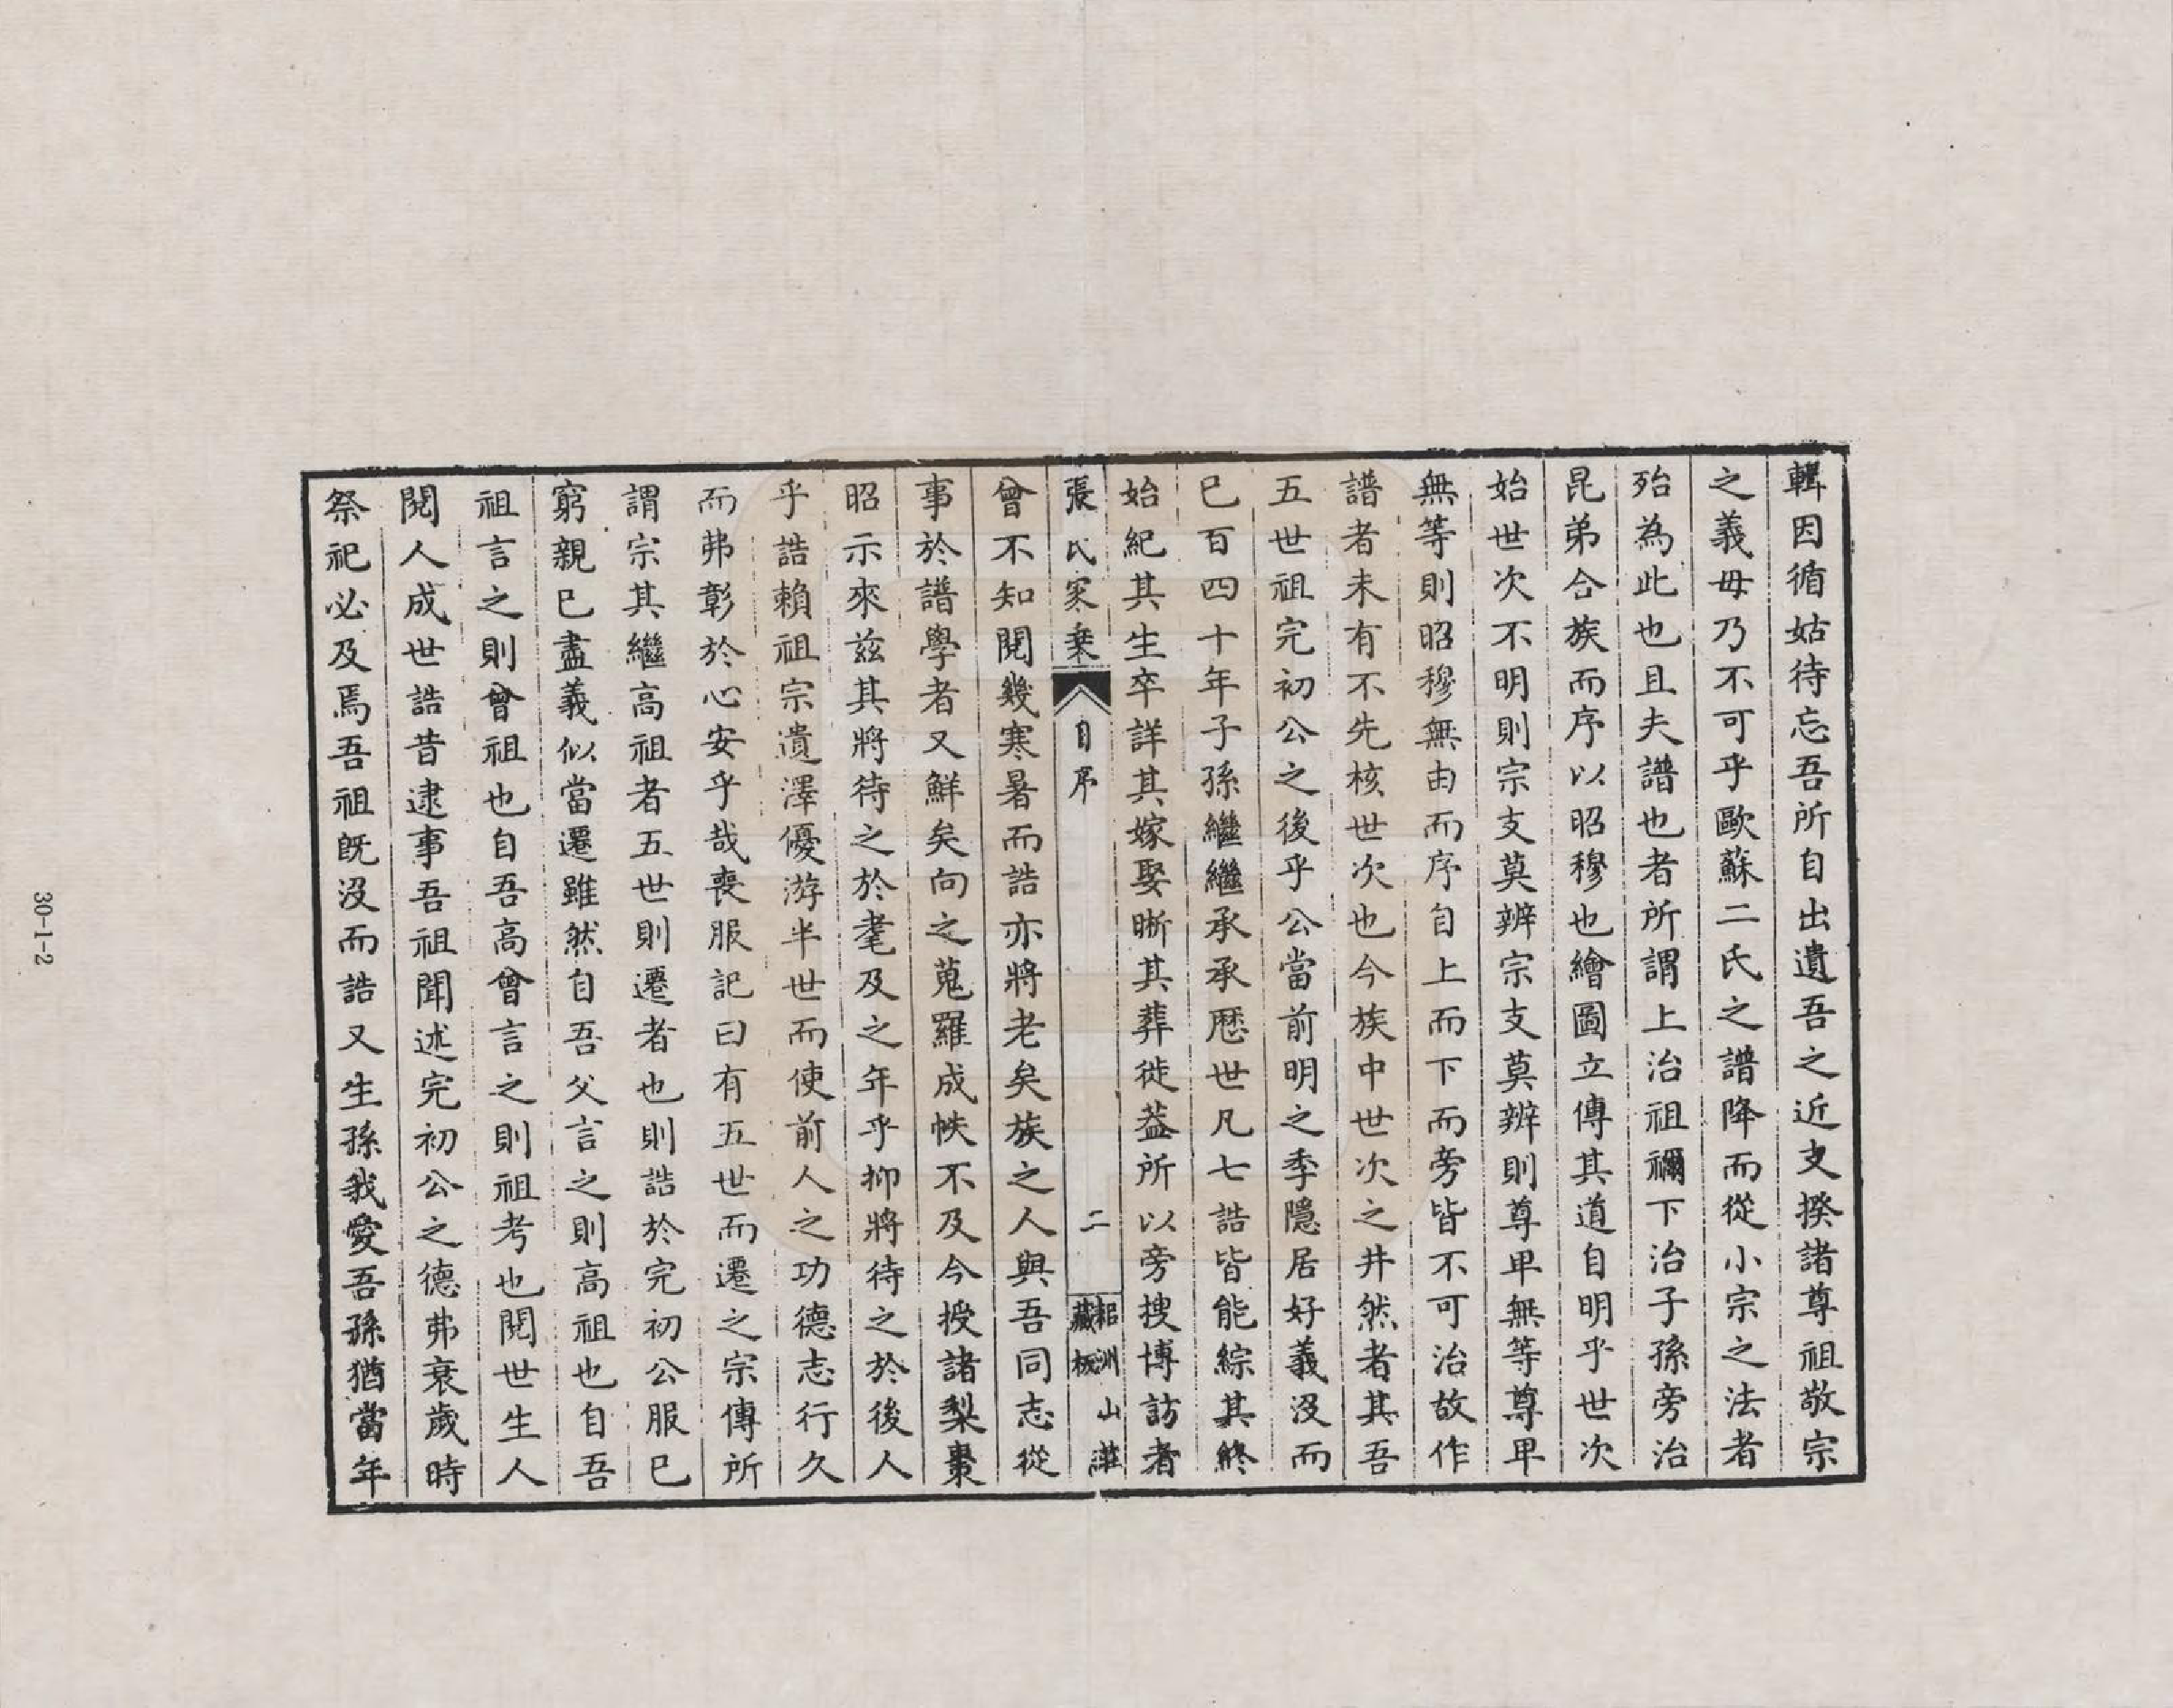 輯因循姑待忘吾所自出遺吾之近支揆諸尊祖敬宗
之義毋乃不可乎歐蘇二氏之譜降而從小宗之法者
殆為此也且夫譜也者所謂上治祖禰下治子孫旁治
昆弟合族而序以昭穆也繪圖立傳其道自明乎世次
始世次不明則宗支莫辨宗支莫辨則尊卑無等尊卑
無等則昭穆無由而序自上而下而旁皆不可治故作
譜者未有不先核世次也今族中世次之井然者其吾
五世祖完初公之後乎公當前明之季隱居好義沒而
已百四十年子孫繼繼承承歷世凡七誥皆能綜其終
始紀其生卒詳其嫁娶晰其葬徙葢所以旁搜博訪者
張氏家乗 自序 二 山 藏板
曾不知閱幾寒暑而誥亦將老矣族之人與吾同志從
事於譜學者又鮮矣向之蒐羅成帙不及今授諸梨棗
昭示來兹其將待之於耄及之年乎抑將待之於後人
乎誥賴祖宗遺澤優游半世而使前人之功德志行久
而弗彰於心安乎哉喪服記曰有五世而遷之宗傳所
謂宗其繼高祖者五世則遷者也則誥於完初公服已
窮親已盡義似當遷雖然自吾父言之則高祖也自吾
祖言之則曾祖也自吾高曾言之則祖考也閱世生人
閱人成世誥昔逮事吾祖聞述完初公之德弗衰歲時
祭祀必及焉吾祖既沒而誥又生孫我愛吾孫猶當年
30-1-2